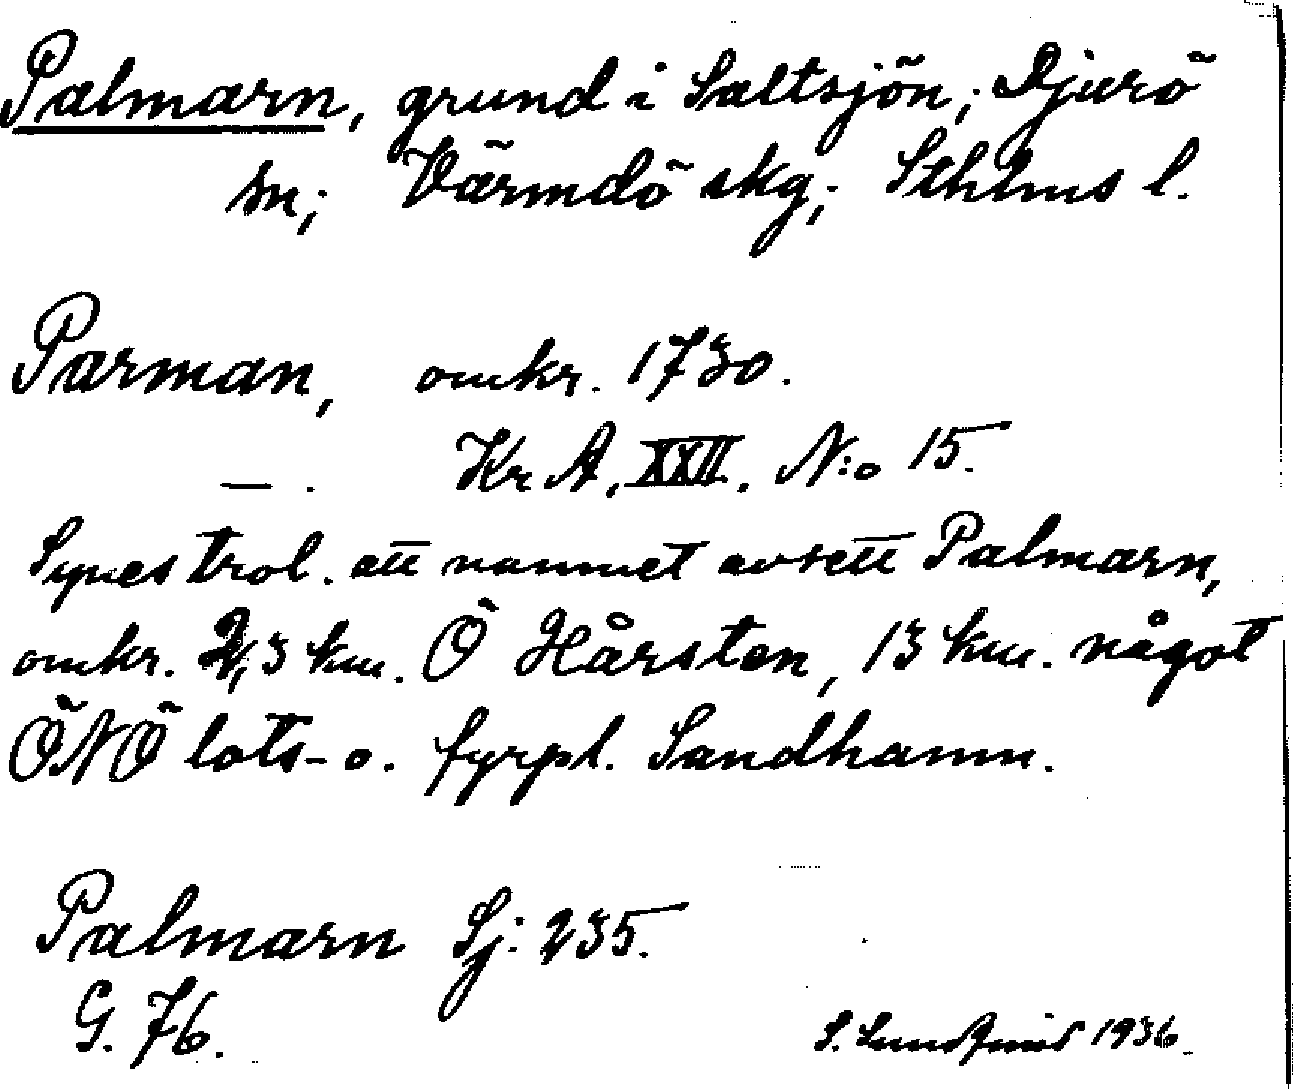 Palmarn, grund i Saltsjön; Djurö
sn; Värmdö skg; Sthlms l.
Parman, omkr. 1730.
—. Kr A, XXII. N:o 15.
Synes trol. att namnet avsett Palmarn,
omkr. 2,3 km. Ö Hårsten, 13 km. något
ÖNÖ lots- o. fyrpl. Sandhamn.
Palmarn Sj: 235.
G. 76.
S. Lundqvist 1936.